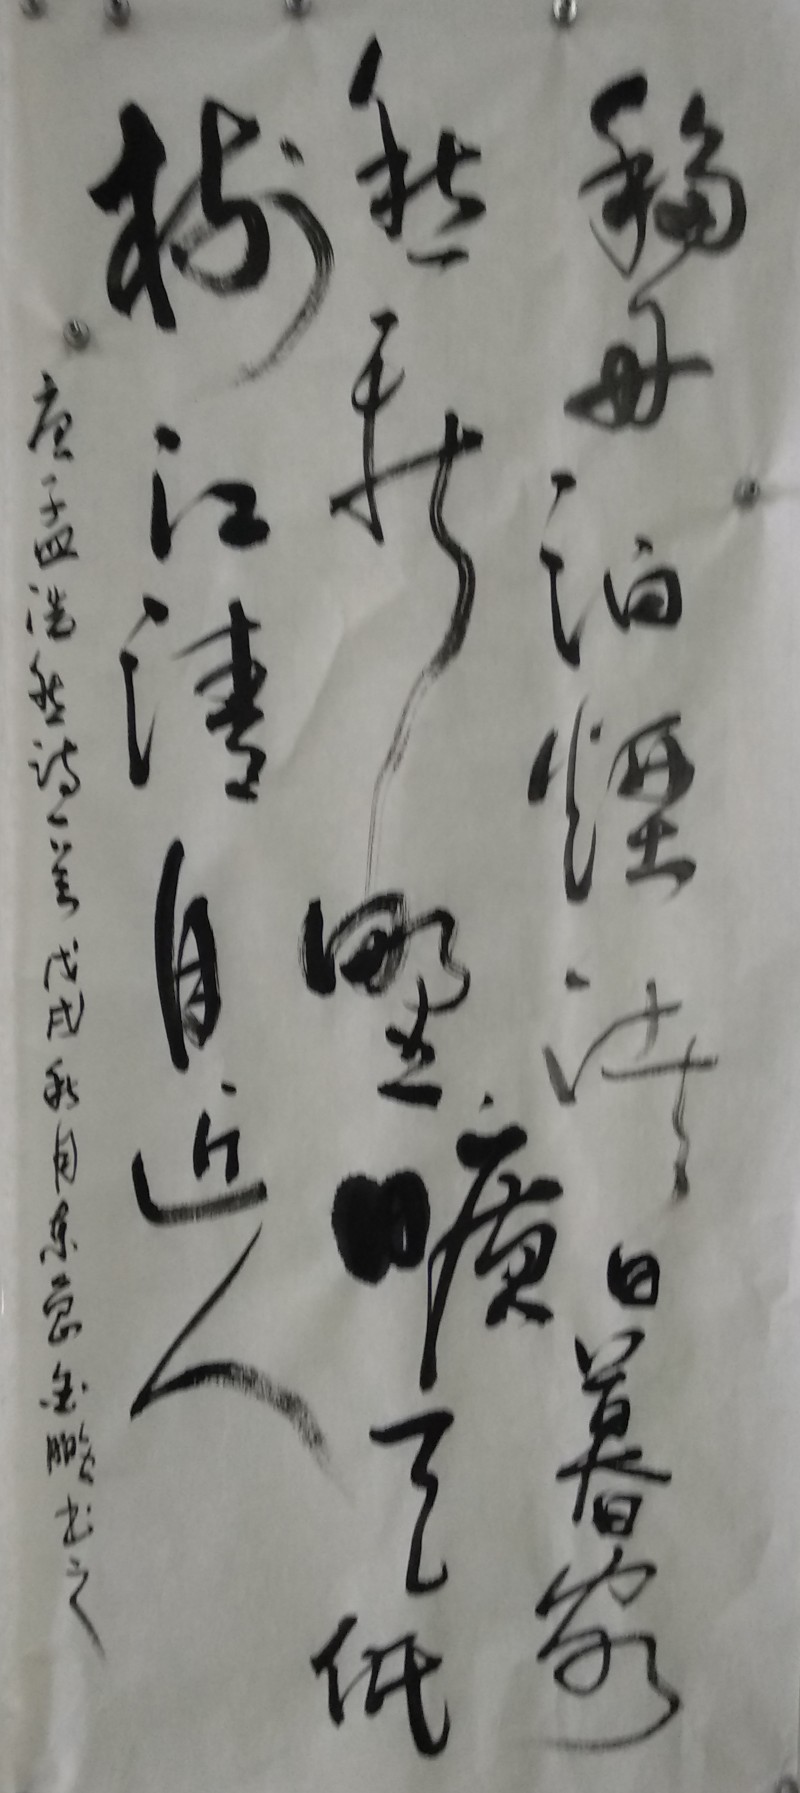 移舟泊煙渚日暮客
愁新野曠天低
樹江清月近人
唐孟浩然詩一首戊戌秋月金鵬书之